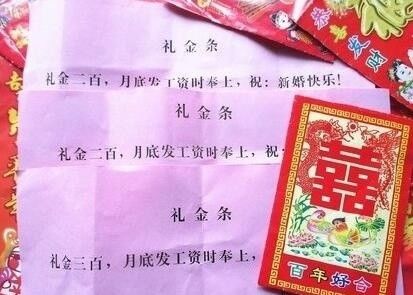 恭喜
发财
礼金条
礼金二百，月底发工资时奉上，祝：新婚快乐！
礼金条
礼金二百，月底发工资时奉上，祝：
礼金条
礼金三百，月底发工资时奉上，
囍
百年好合